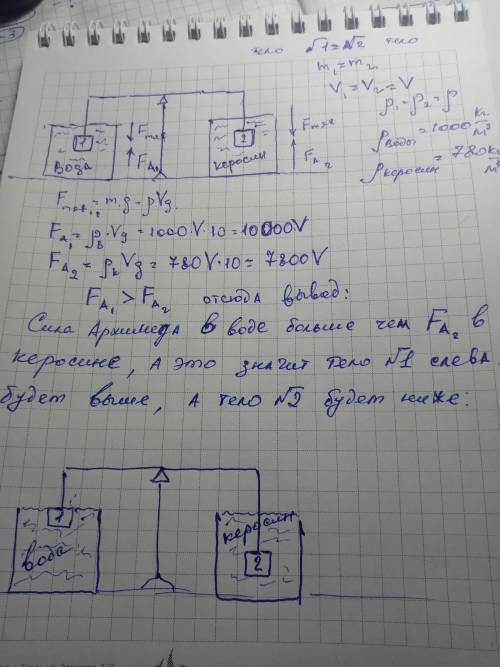 тело №1=№2 тело
m₁=m₂
V₁=V₂=V
ρ₁=ρ₂=ρ
ρводы=1000 кг/м³
ρкеросин=780 кг/м³
1
вода
Fтяж
FА₁
2
керосин
Fтяж
FА₂
Fтяж₁,₂=m·g=ρVg
FА₁=ρв·Vg=1000·V·10=10000V
FА₂=ρкVg=780V·10=7800V
FА₁>FА₂ отсюда вывод:
Сила Архимеда в воде больше чем FА₂ в
керосине, а это значит тело №1 слева
будет выше, а тело №2 будет ниже:
1
вода
керосин
2